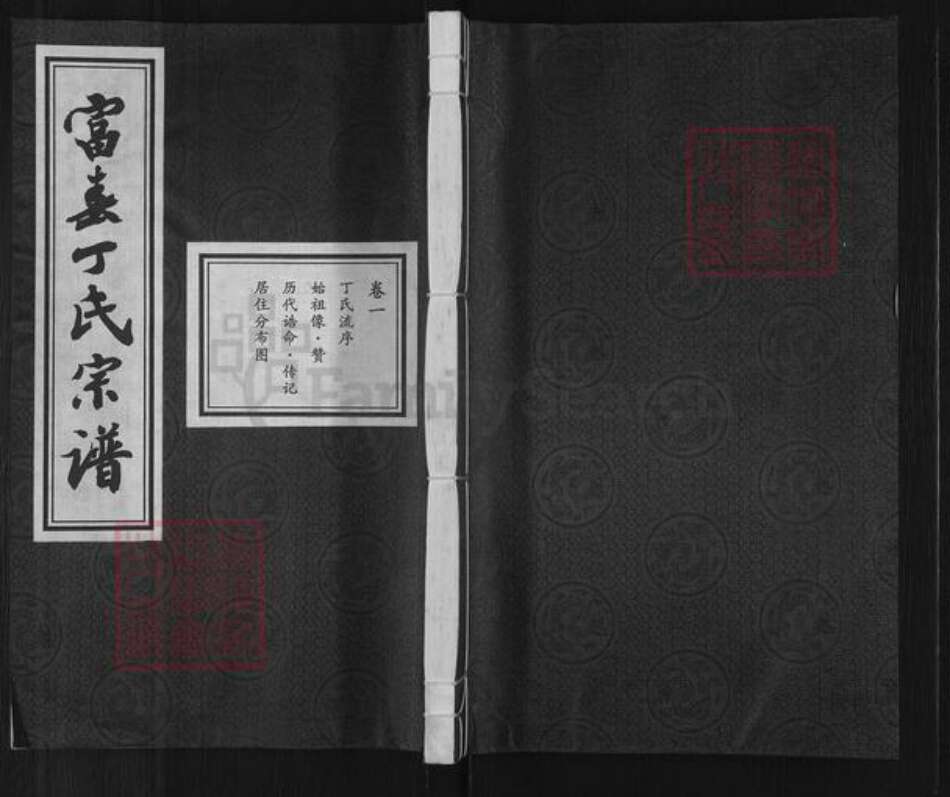 富春丁氏宗谱
卷一
丁氏流序
始祖像·赞
历代诰命·传记
居住分布图
FamilySearch